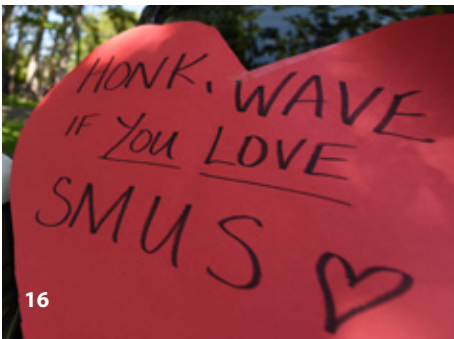 HONK, WAVE
IF YOU LOVE
SMUS
16